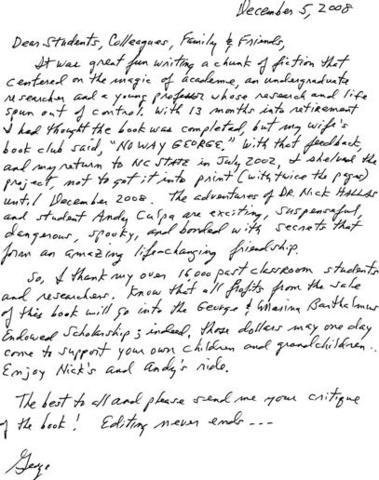 December 5, 2008
Dear Students, Colleagues, Family & Friends,
It was great fun writing a chunk of fiction that
centered on the magic of academe, an undergraduate
researcher and a young professor whose research and life
spun out of control. With 13 months into retirement
I had thought the book was completed, but my wife's
book club said, "NO WAY GEORGE." With that feedback,
and my return to NC STATE in July 2002, I shelved the
project, not to get it into print (with twice the pages)
until December 2008. The adventures of DR. Nick
and student Andy Culpa are exciting, suspenseful,
dangerous, spooky, and bonded with secrets that
form an amazing life-changing friendship.
So, I thank my over 16,000 past classroom students
and researchers. Know that all profits from the sale
of this book will go into the George & Marina Barthalmus
Endowed Scholarship; indeed, those dollars may one day
come to support your own children and grandchildren...
Enjoy Nick's and Andy's ride.
The best to all and please send me your critique
of the book! Editing never ends ---
George